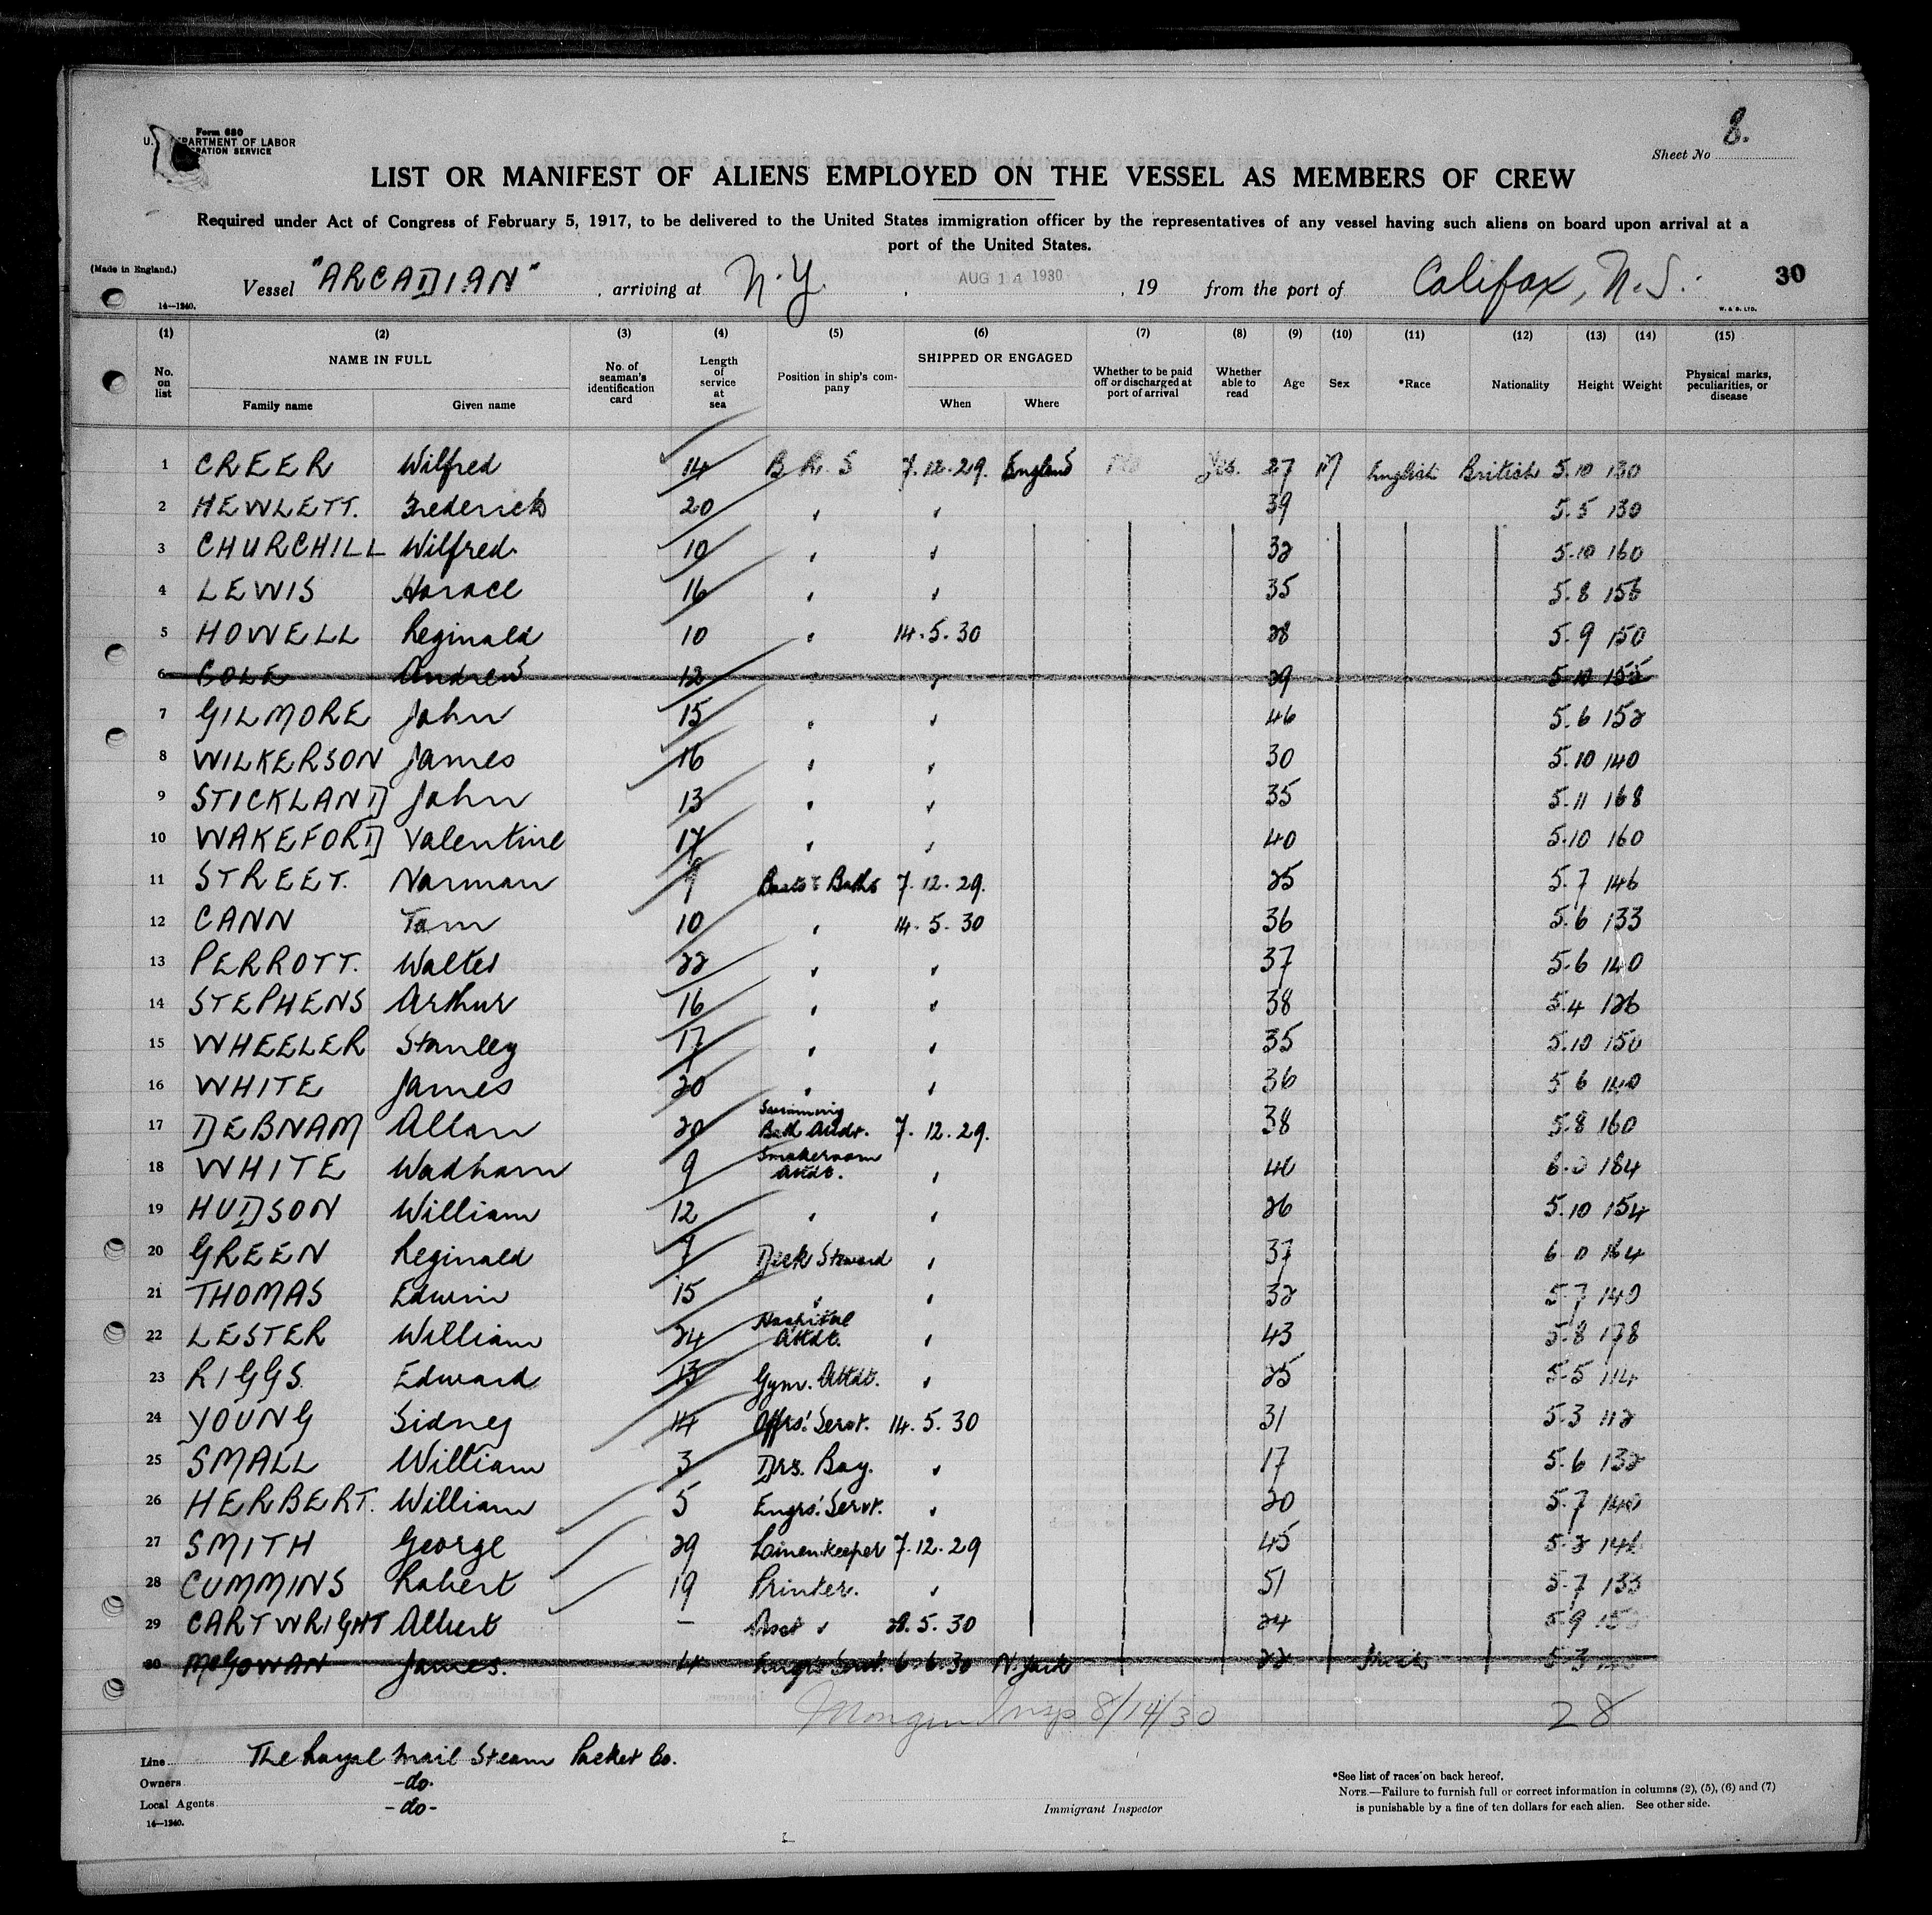 Form 680
U. DEPARTMENT OF LABOR
IMMIGRATION SERVICE
Sheet No 8.
LIST OR MANIFEST OF ALIENS EMPLOYED ON THE VESSEL AS MEMBERS OF CREW
Required under Act of Congress of February 5, 1917, to be delivered to the United States immigration officer by the representatives of any vessel having such aliens on board upon arrival at a
port of the United States.
(Made in England.)
Vessel "ARCADIAN", arriving at N.Y., AUG 14 1930, 19 from the port of Califax, N.S. 30
14—1240. W. & S. LTD.
(1) (2) (3) (4) (5) (6) (7) (8) (9) (10) (11) (12) (13) (14) (15)
No. on list NAME IN FULL Family name Given name No. of seaman's identification card Length of service at sea Position in ship's company SHIPPED OR ENGAGED When Where Whether to be paid off or discharged at port of arrival Whether able to read Age Sex *Race Nationality Height Weight Physical marks, peculiarities, or disease
1 CREER Wilfred 14 B.R.S 7.12.29. England No Yes. 27 M English British 5.10 130
2 HEWLETT. Frederick 20 " " 39 5.5 130
3 CHURCHILL Wilfred 10 " " 32 5.10 160
4 LEWIS Horace 16 " " 35 5.8 156
5 HOWELL Reginald 10 " 14.5.30 28 5.9 150
6 COLE Andrew 12 " " 29 5.10 155
7 GILMORE John 15 " " 46 5.6 152
8 WILKERSON James 16 " " 30 5.10 140
9 STICKLAND John 13 " " 35 5.11 168
10 WAKEFORD Valentine 17 " " 40 5.10 160
11 STREET. Norman 9 Boots & Baths 7.12.29. 25 5.7 146
12 CANN Tom 10 " 14.5.30 36 5.6 133
13 PERROTT. Walter 22 " " 37 5.6 140
14 STEPHENS Arthur 16 " " 38 5.4 126
15 WHEELER Stanley 17 " " 35 5.10 150
16 WHITE James 20 " " 36 5 6 140
17 DEBNAM Allan 20 Swimming Bath Attdt. 7.12.29. 38 5.8 160
18 WHITE Wadham 9 Smokeroom Attdt. " 40 6.0 184
19 HUDSON William 12 " " 26 5.10 154
20 GREEN Reginald 7 Deck Steward " 37 6 0 164
21 THOMAS Edwin 15 " " 32 5.7 140
22 LESTER William 24 Hospital Attdt. " 43 5.8 178
23 RIGGS. Edward 13 Gym. Attdt. " 25 5.5 114
24 YOUNG Sidney 14 Offrs'. Servt. 14.5.30 31 5.3 112
25 SMALL William 3 Drs. Boy. " 17 5.6 132
26 HERBERT. William 5 Engrs'. Servt. " 20 5.7 140
27 SMITH George 29 Lainenkeeper 7.12.29 45 5.2 146
28 CUMMINS Robert 19 Printer. " 51 5.7 133
29 CARTWRIGHT Albert — Asst " 28.5.30 24 5.9
30 McGOWAN James. 4 Engrs Servt. 6.6.30 N. York 22 5.3
Insp 8/14/30 28
Line The Royal Mail Steam Packet Co.
Owners -do-
Local Agents -do-
14—1240.
Immigrant Inspector
*See list of races on back hereof.
NOTE.—Failure to furnish full or correct information in columns (2), (5), (6) and (7)
is punishable by a fine of ten dollars for each alien. See other side.